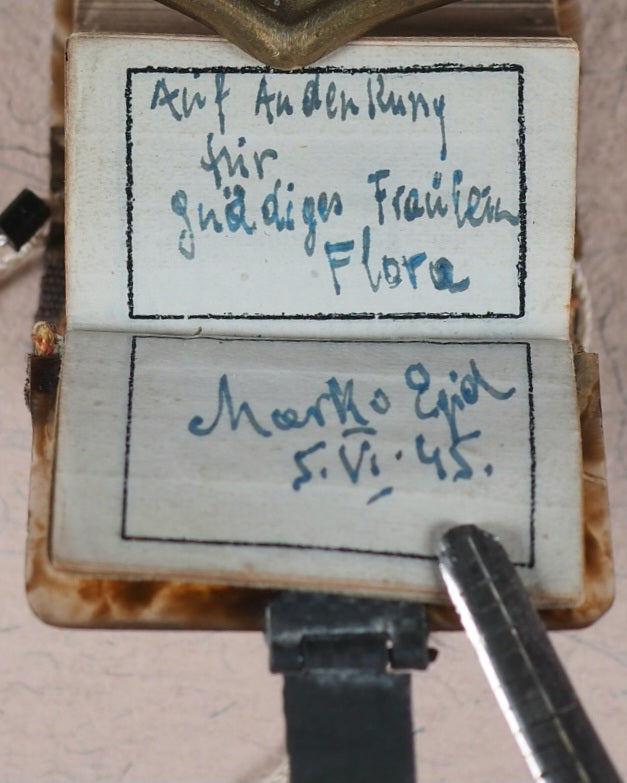 Auf Andenkung
für
gnädiges Fraülein
Flora
Marko Egid
5.VI.45.